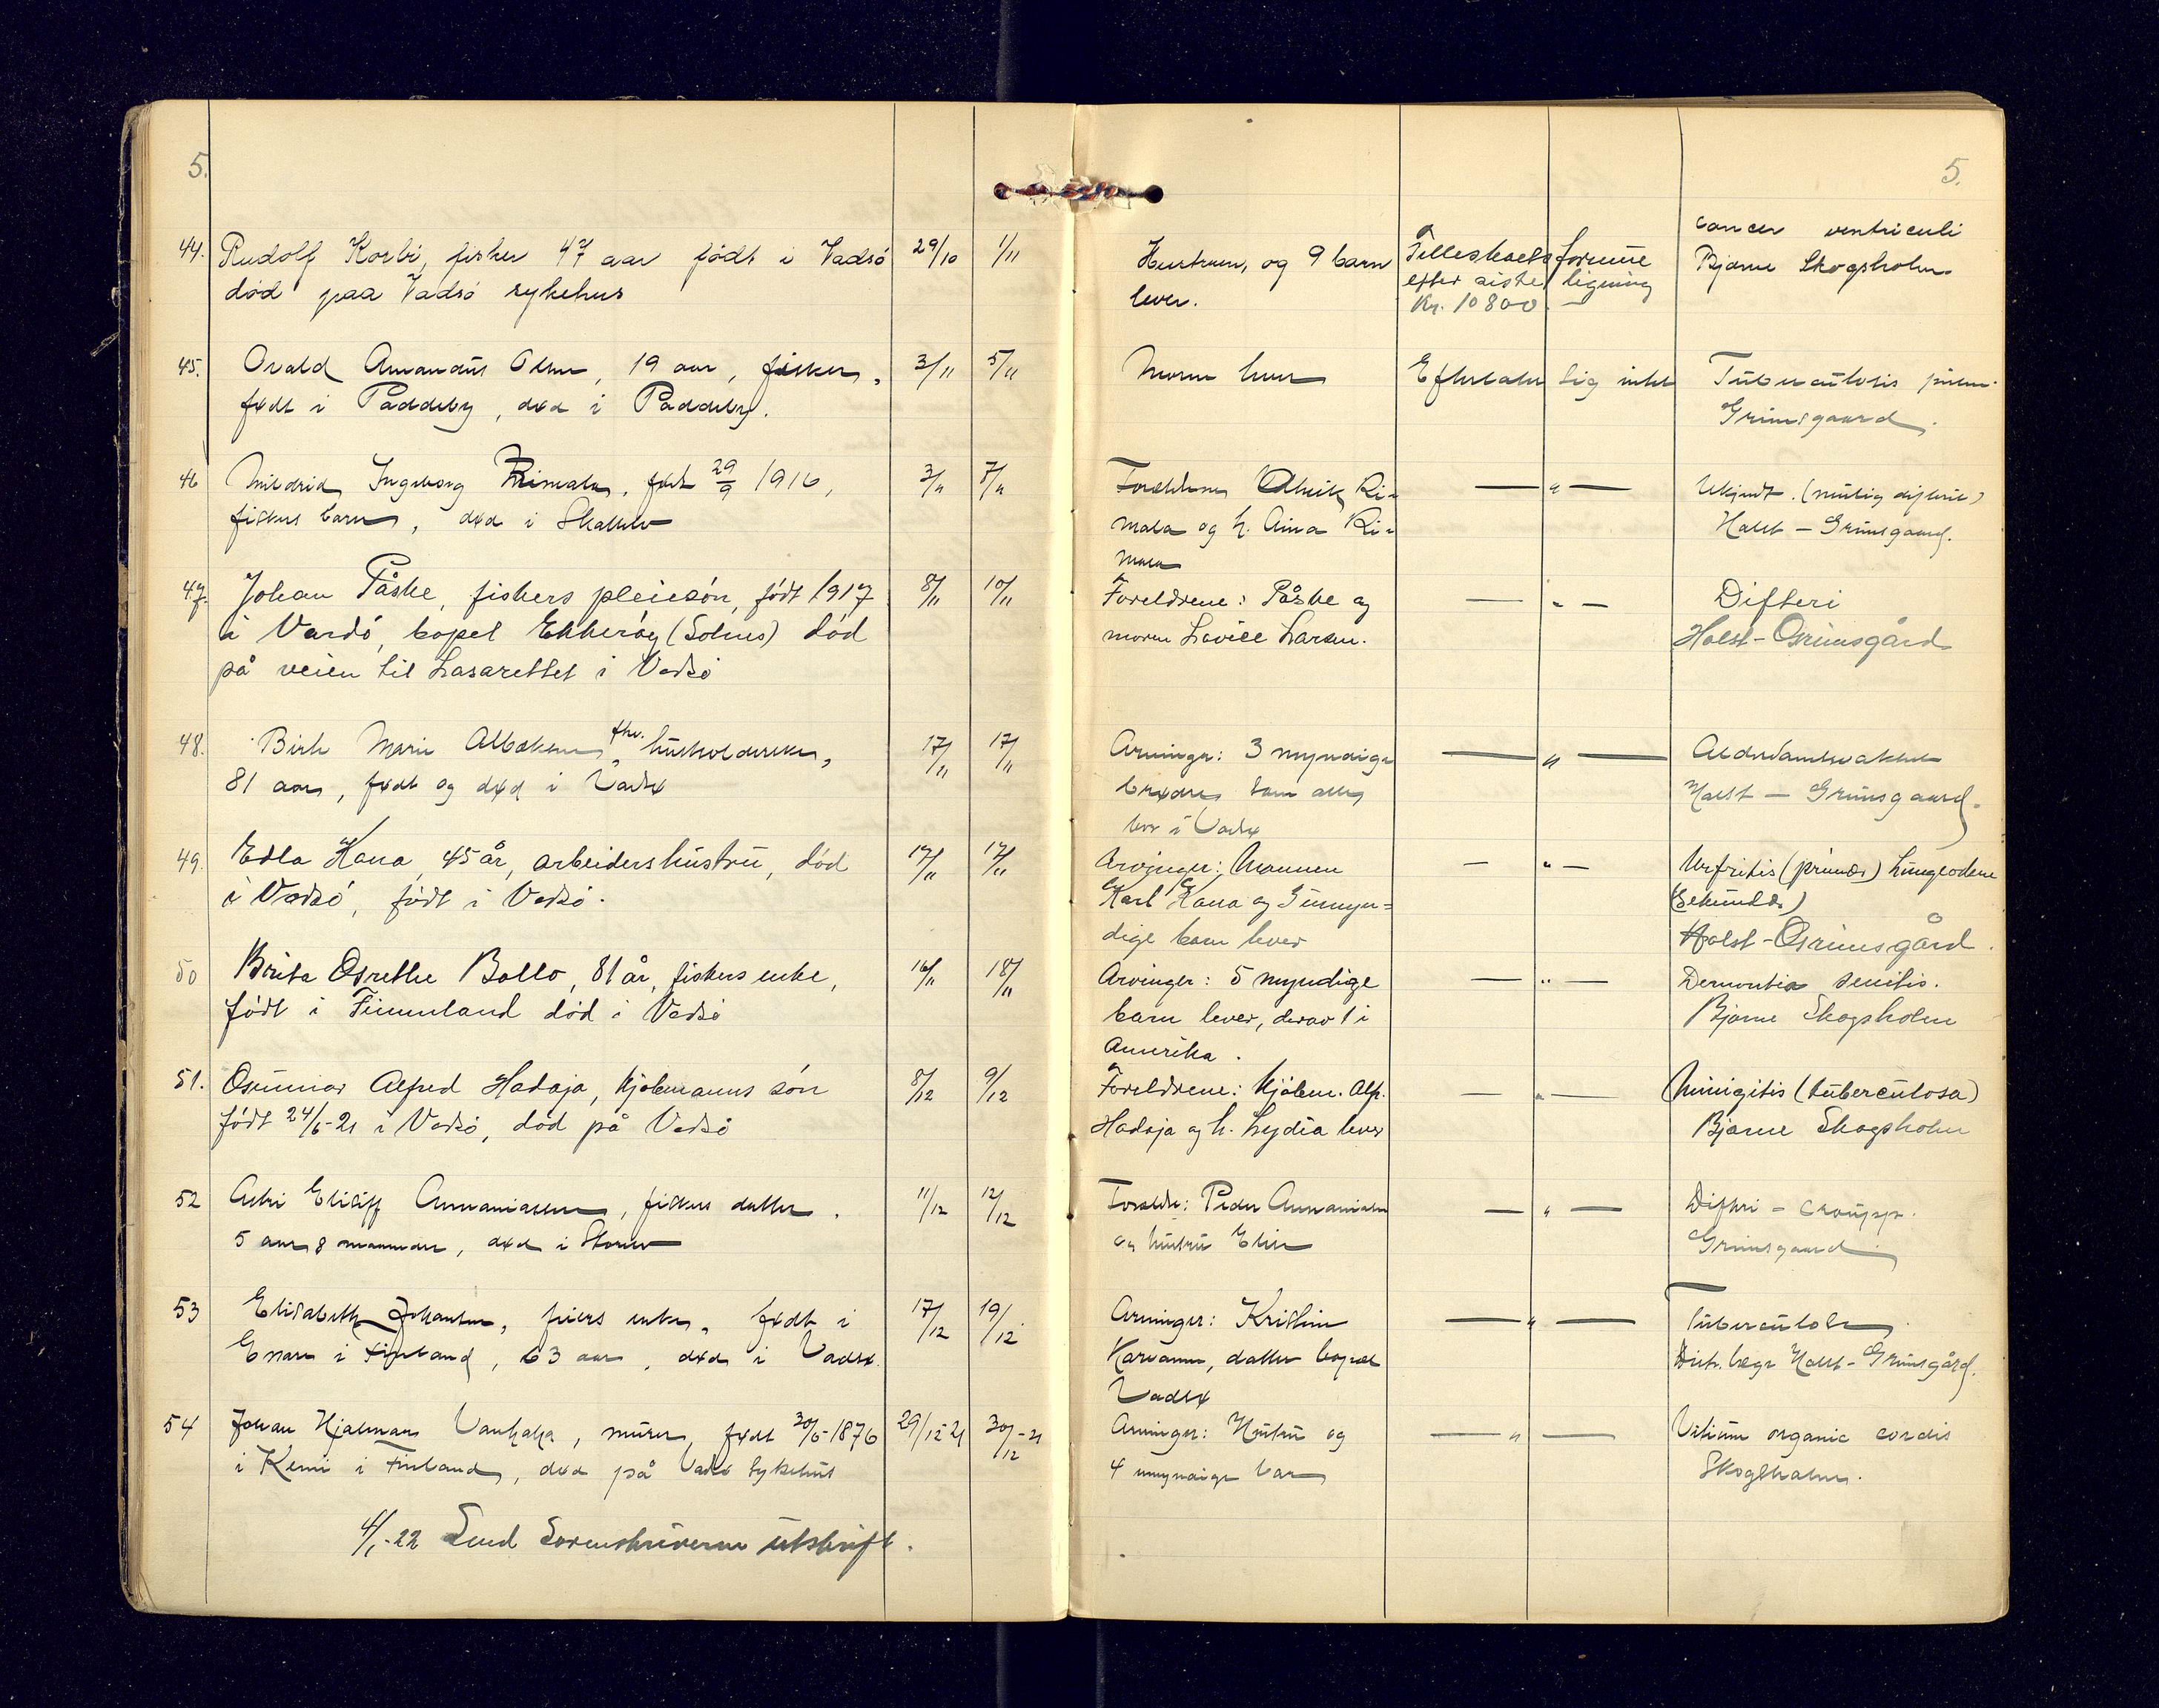 5.
5.
44. Rudolf Korbi, fisker 47 aar født i Vadsö 29/10 1/11
död paa Vadsö sykehus
Hustruen, og 9 barn
lever.
Fellesboets formue
efter siste ligning
Kr. 10800.—
cancer ventriculi
Bjarne Skogsholm
45. Osvald Amandus Olsen, 19 aar, fisker, 3/11 5/11
født i Paddeby, død i Paddeby.
Moren lever
Efterlater sig intet
Tuberculosis pulm.
Grimsgaard.
46 Mildrid Ingeborg Rimala, født 29/9 1916, 3/11 7/11
fiskers barn, død i
Forældrene Ri-
mala og h. Aina Ri-
mala
— " —
Ukjendt. (mulig difteri)
Holst - Grimsgaard.
47. Johan Påske, fiskers pleiesön, födt 1917 8/11 10/11
i Vardö, bopel Ekkeröy (Solnes) död
på veien til Lasarettet i Vadsö
Foreldrene: Påske og
moren Lovise Larsen.
— " —
Difteri
Holst-Grimsgård
48. Birte Marie Albaksen, fhv. husholderske, 17/11 17/11
81 aar, født og død i Vadsø
Arvinger: 3 myndige
brødre, som alle
bor i Vadsø
— " —
Alderdomssvakhet
Holst - Grimsgaard.
49. Edla Kana, 45 år, arbeidershustru, död 17/11 17/11
i Vadsö, födt i Vadsö.
Arvinger: Mannen
Karl Kana og 3 umyn=
dige barn lever
— " —
Nefritis (primær) Lungeödem
(sekundær)
Holst-Grimsgård.
50 Brita Grethe Bollo, 81 år, fiskers enke, 16/11 18/11
födt i Finnland död i Vadsö
Arvinger: 5 myndige
barn lever, derav 1 i
Amerika.
— " —
Dementia senilis.
Bjarne Skogsholm
51. Gunnar Alfred Hadaja, kjöbmanns sön 8/12 9/12
födt 24/6-21 i Vadsö, död på Vadsö
Foreldrene: Kjöbm. Alf.
Hadaja og h. Lydia lever
— " —
Miningitis (tuberculosa)
Bjarne Skogsholm
52 Astri Elisiff Annaniassen, fiskers datter. 11/12 12/12
5 aar 8 maaneder, død i
Foreldre: Peder Annaniassen
og hustru Elise
— " —
Difteri - croupp.
Grimsgaard
53 Elisabeth Johansen, feiers enke, født i 17/12 19/12
Enare i Finland, 63 aar, død i Vadsø.
Arvinger: Kristine
Karvanen, datter bopæl
Vadsø
— " —
Tuberculose
Distr. læge Holst-Grimsgård.
54 Johan Hjalmar Vanhala, murer, født 30/5-1876 29/12 21 30/12-21
i Kemi i Finland, død på Vadsø Sykehus
Arvinger: Hustru og
4 umyndige barn
— " —
Vitium organic cordis
Skogsholm.
4/1-22 Send Sorenskriveren utskrift.